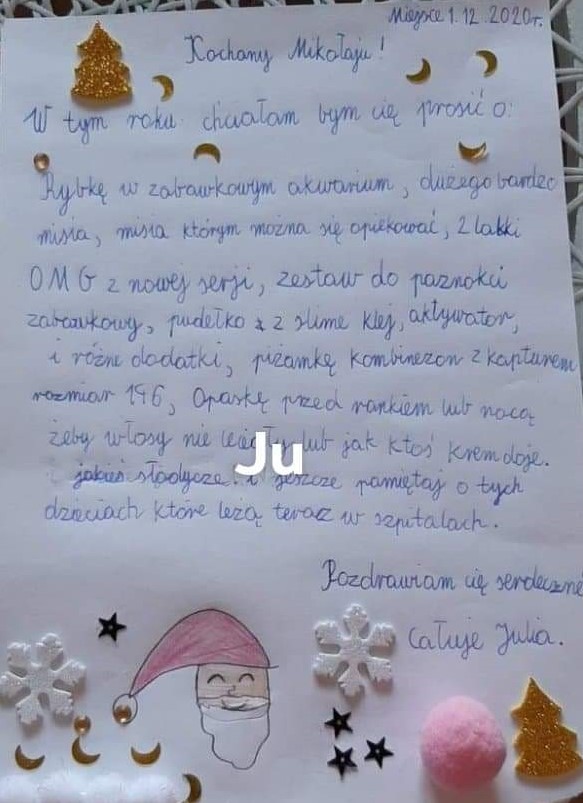 Miejsce 1.12.2020r.
Kochany Mikołaju!
W tym roku chciałam bym cię prosić o:
Rybkę w zabawkowym akwarium, dużego bardzo
misia, misia którym można się opiekować, 2 lalki
OMG z nowej serji, zestaw do paznokci
zabawkowy, pudełko z slime klej, aktywator,
i różne dodatki, piżamkę kombinezon z kapturem
rozmiar 146, Opaskę przed rankiem lub nocą
żeby włosy nie lub jak ktoś krem daje.
Ju
jakieś słodycze. i jeszcze pamiętaj o tych
dzieciach które leżą teraz w szpitalach.
Pozdrawiam cię serdecznie
Całuje Julia.